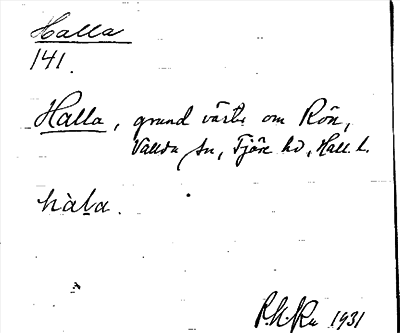 Halla
141.
Halla, grund väster om Rön,
Vallda sn, Fjäre hd, Hall. l.
hàla.
1931